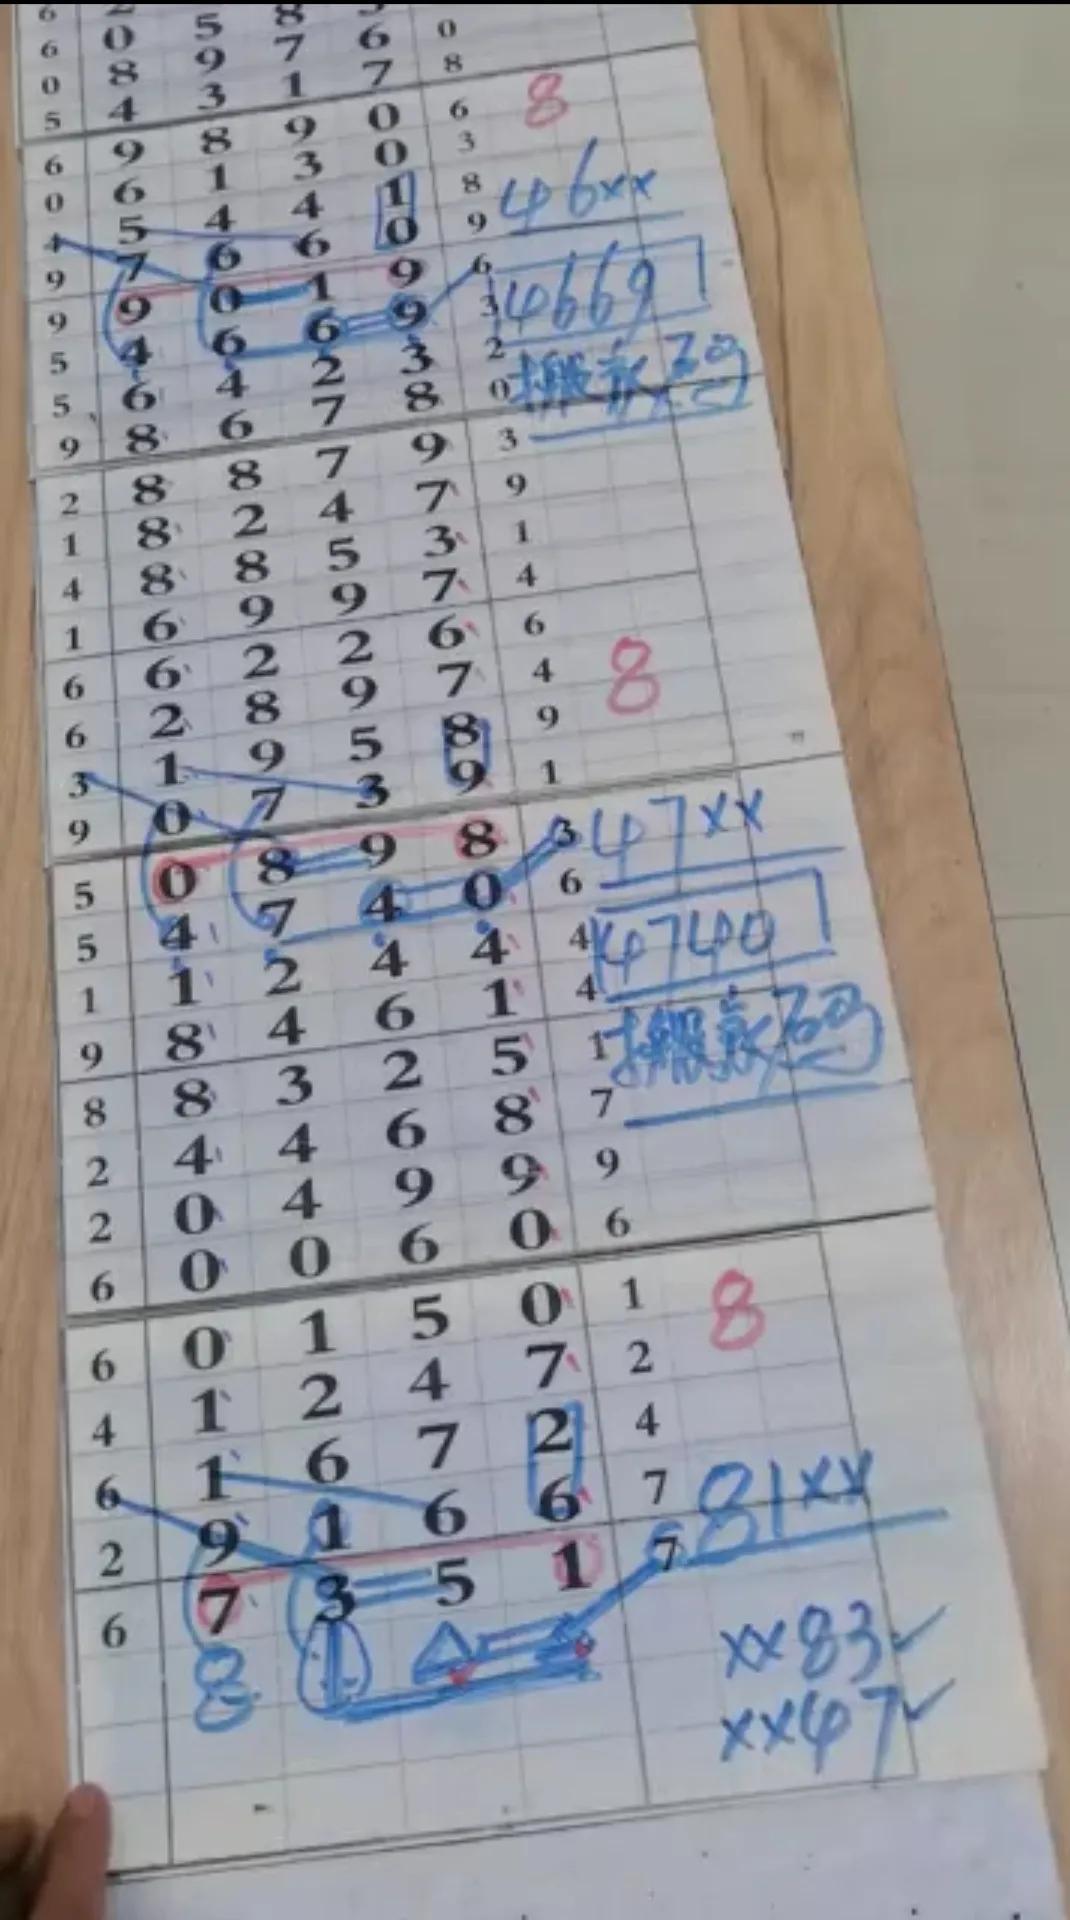 6 2 8 5
6 0 5 8 6 0
0 8 9 7 7 8
5 4 3 1
6 9 8 9 0 6 8
0 6 1 3 0 3
4 5 4 4 1 8 46xx
9 7 6 6 0 9
9 9 0 1 9 6 4669
5 4 6 6 9 3
5 6 4 2 3 2
9 8 6 7 8 0
2 8 8 7 9 3
1 8 2 4 7 9
4 8 8 5 3 1
1 6 9 9 7 4
6 6 2 2 6 6
6 2 8 9 7 4 8
3 1 9 5 8 9
9 0 7 3 9 1
5 0 8 9 8 3 47xx
5 4 7 4 0 6 4740
1 1 2 4 4 4
9 8 4 6 1 4
8 8 3 2 5 1
2 4 4 6 8 7
2 0 4 9 9 9
6 0 0 6 0 6
6 0 1 5 0 1 8
4 1 2 4 7 2
6 1 6 7 2 4
2 9 1 6 6 7 81xx
6 7 3 5 1 7
8 1 xx83
xx47